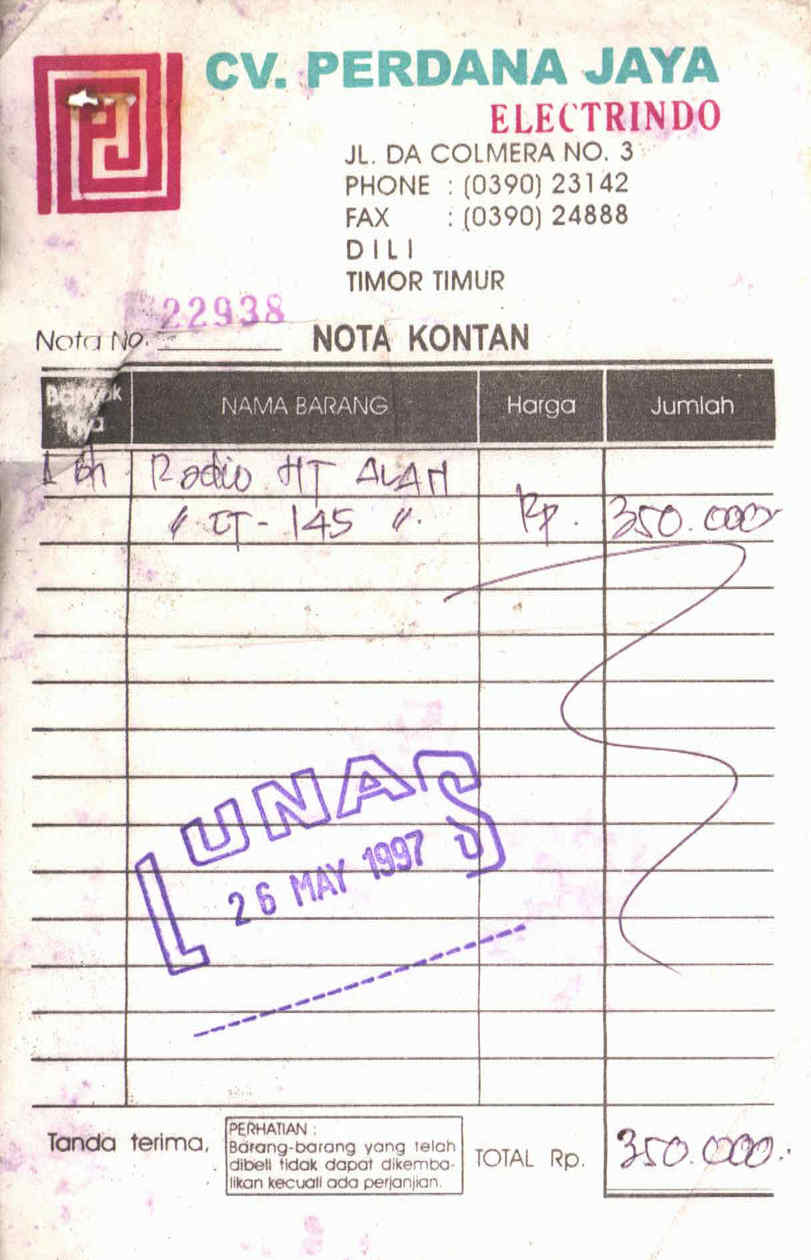 CV. PERDANA JAYA
ELECTRINDO
JL. DA COLMERA NO. 3
PHONE : (0390) 23142
FAX : (0390) 24888
DILI
TIMOR TIMUR
22938
Nota No. NOTA KONTAN
NAMA BARANG Harga Jumlah
1 Bh Radio HT ALAN
" CT-145 ". Rp. 350.000
LUNAS
26 MAY 1997
PERHATIAN :
Tanda terima, Barang-barang yang telah
dibeli tidak dapat dikemba-
likan kecuali ada perjanjian.
TOTAL Rp. 350.000.